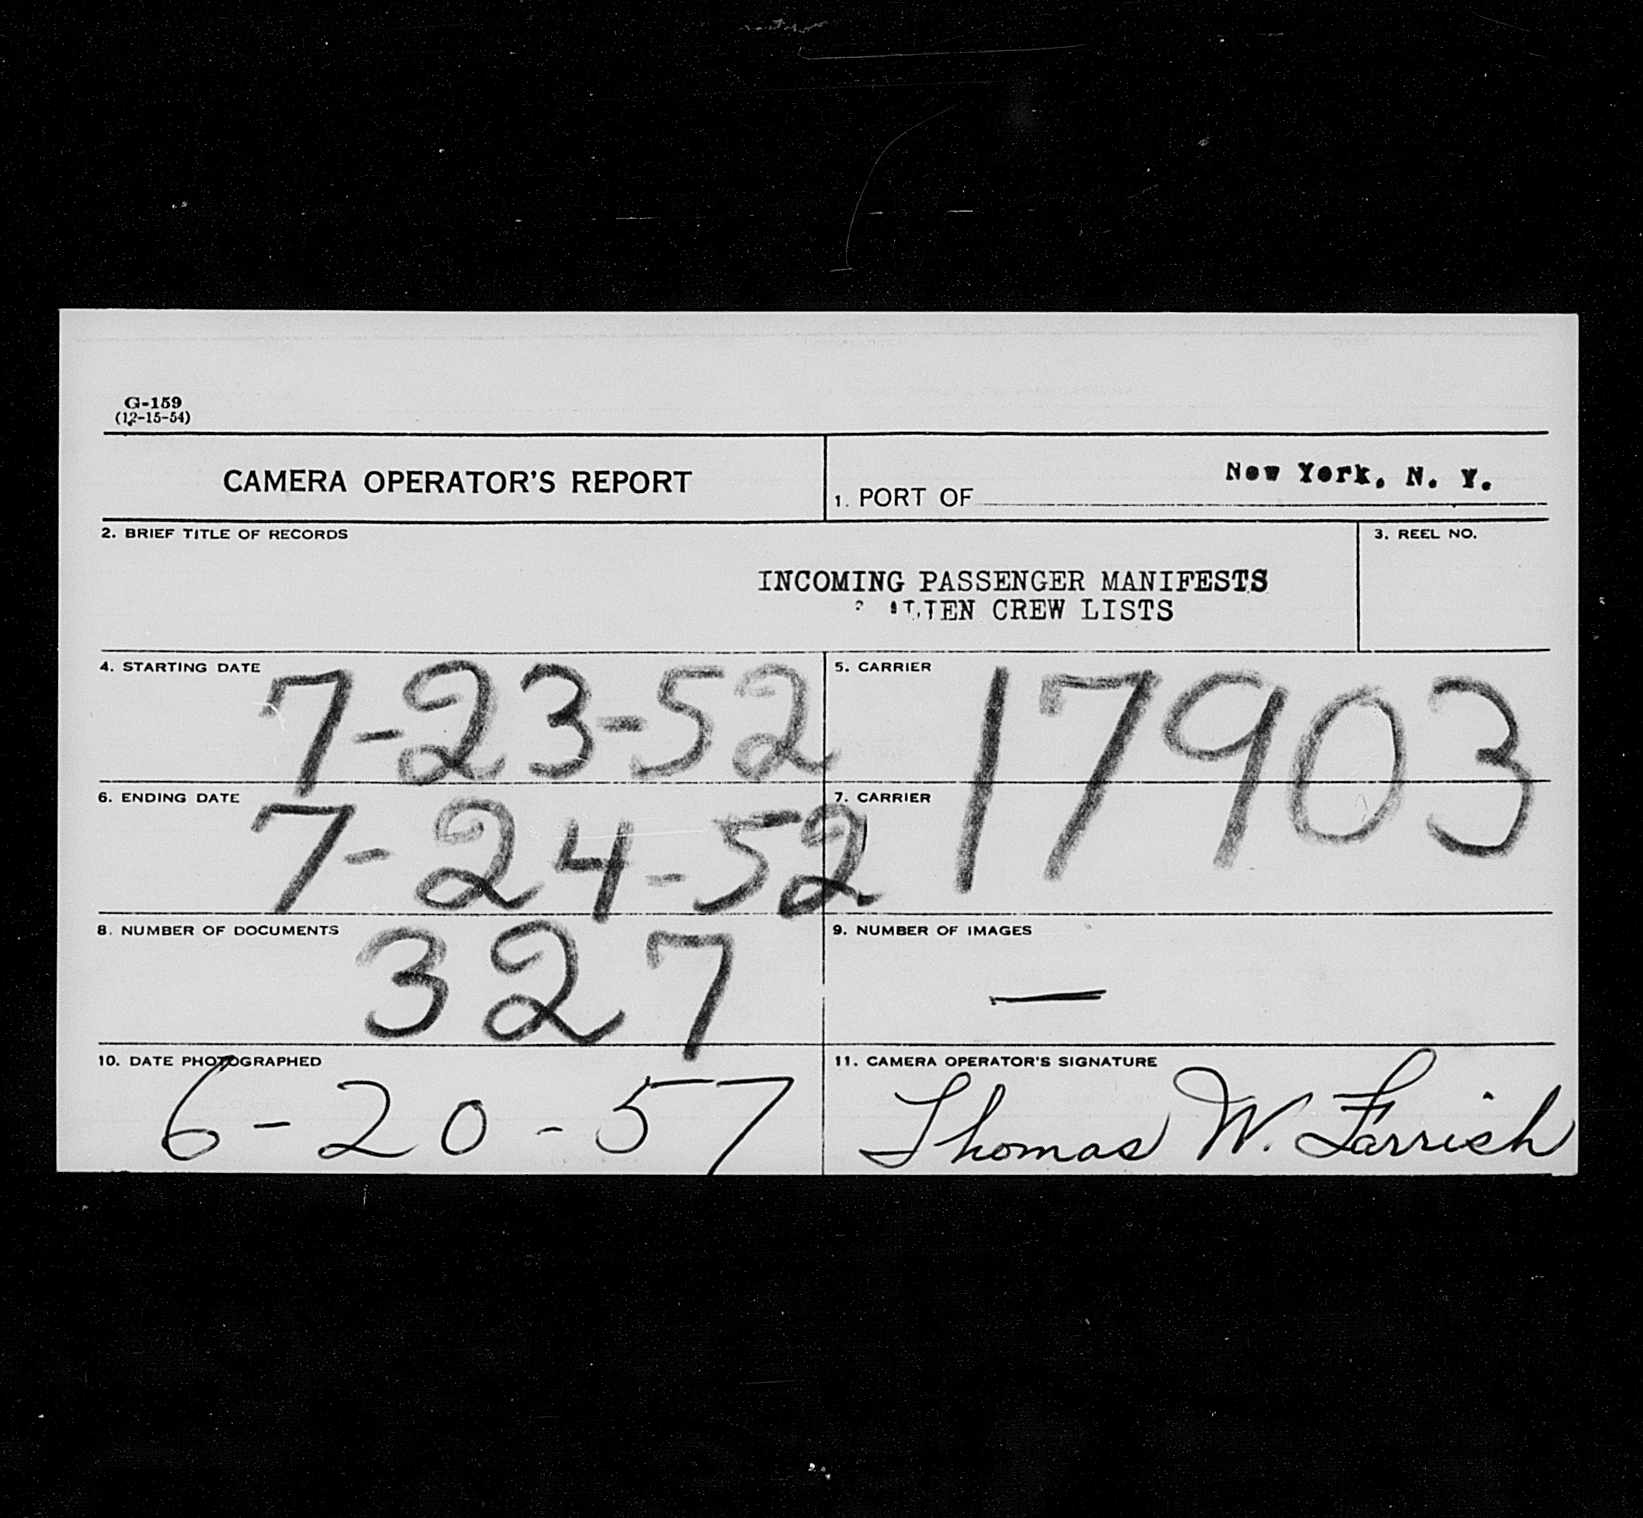 G-159
(12-15-54)
CAMERA OPERATOR'S REPORT
1. PORT OF New York, N. Y.
2. BRIEF TITLE OF RECORDS
3. REEL NO.
INCOMING PASSENGER MANIFESTS
ALIEN CREW LISTS
4. STARTING DATE 7-23-52
5. CARRIER 17903
6. ENDING DATE 7-24-52
7. CARRIER
8. NUMBER OF DOCUMENTS 327
9. NUMBER OF IMAGES —
10. DATE PHOTOGRAPHED 6-20-57
11. CAMERA OPERATOR'S SIGNATURE Thomas W. Farrish